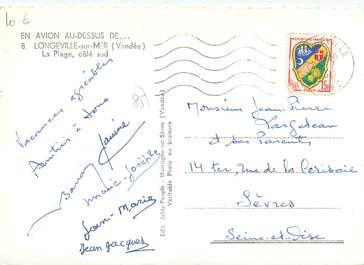 10 €
EN AVION AU-DESSUS DE...
8. LONGEVILLE-sur-MER (Vendée)
La Plage, côté sud
85
Vacances agréables
Amitiés à tous
Janine
Marie Josèphe
Jean-Marie
Jean Jacques
Edit. Jehly-Poupin - Mortagne-sur-Sèvre (Vendée)
Véritable Photo au bromure
Monsieur Jean Pierre
et ses Parents
14 ter, rue de la Cerisaie
Sèvres
Seine-et-Oise